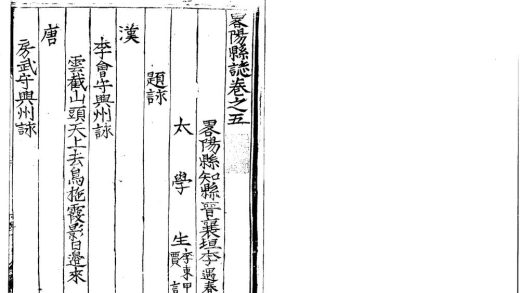 畧陽縣誌卷之五
畧陽縣知縣晉襄垣李遇春
太學生李東甲
賈言
題詠
漢
李會守興州詠
雲截山頭天上去鳥拖霞影日邊來
唐
房武守興州詠